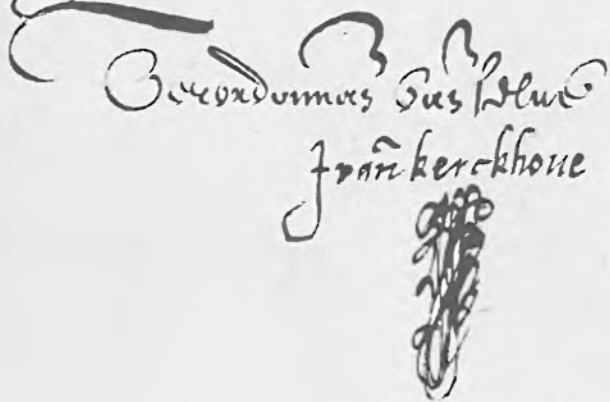 Ter ordonnan̄ van̄ selue
J van̄ kerckhoue